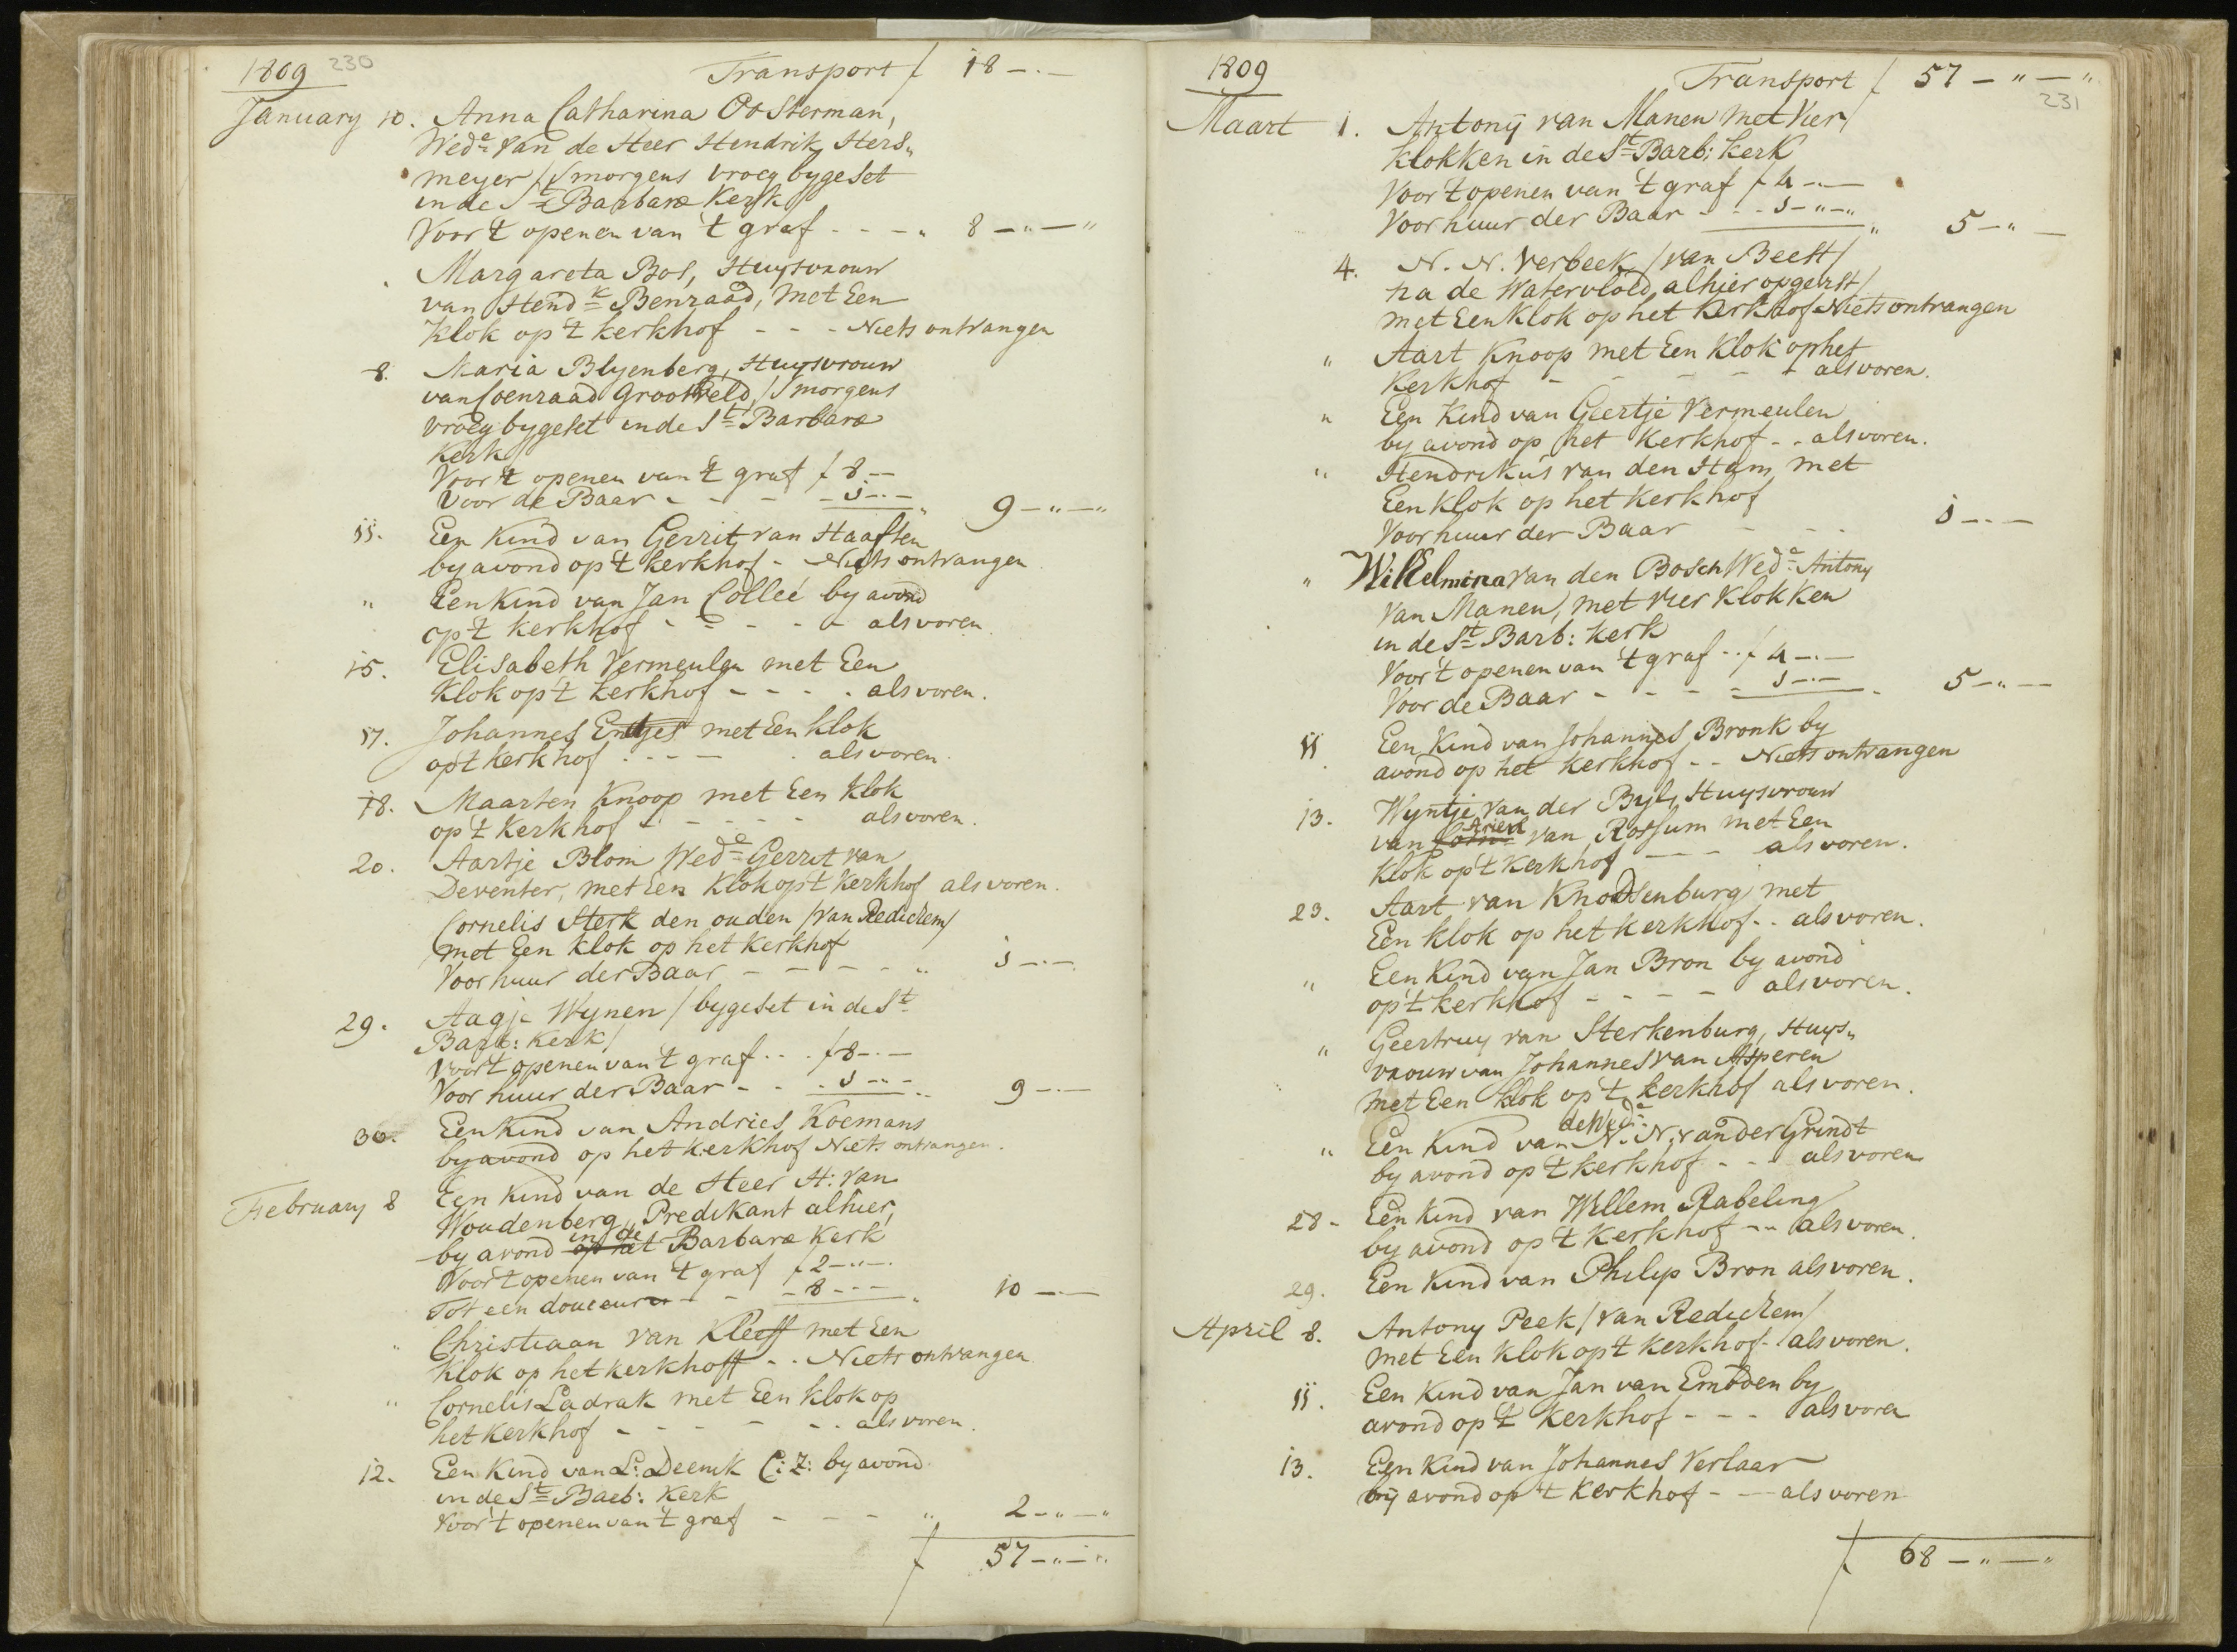 1809 230 Transport f 18 – . –
January 10. Anna Catharina Oosterman,
Wed.e van de Heer Hendrik Hers„
meyer /'S morgens vroeg bygeset
in de St Barbara Kerk/
Voor 't openen van 't graf - - - „ 8 – „ – „
. Margareta Bos, Huysvrouw
van Hendk Benraad, met Een
Klok op 't kerkhof - - - Niets ontvangen
8. Maria Blyenberg, Huysvrouw
van Coenraad Grootveld, /'Smorgens
vroeg bygeset in de St Barbara
Kerk/
Voor 't openen van 't graf f 8 –
Voor de Baar - - - - 1 – . – „ 9 – „ – „
11. Een Kind van Gerrit van Haaften
by avond op 't kerkhof - Niets ontvangen
„ Een Kind van Jan Colleé by avond
op 't kerkhof - - - - - als voren.
15. Elisabeth Vermeulen met Een
Klok op 't kerkhof - - - - als voren.
17. Johannes Entjes met Een klok
op 't kerkhof - - - - als voren.
18. Maarten Knoop met Een klok
op 't Kerkhof - - - - - als voren.
20. Aartje Blom Wed.e Gerrit van
Deventer, met Een Klok op 't Kerkhof als voren.
Cornelis Sterk den ouden /van Redichem/
met Een klok op het kerkhof
Voor huur der Baar - - - - „ 1 – . –
29. Aagje Wynen / bygeset in de St
Barb: Kerk/
Voor 't openen van 't graf . . . f 8 – . –
Voor huur der Baar - - - 1 – „ – „ 9 – . –
30. Een Kind van Andries Koemans
by avond op het kerkhof Niets ontvangen.
February 8 Een Kind van de Heer H: van
Woudenberg, Predikant alhier,
in de
by avond op het Barbara Kerk
Voor 't openen van 't graf f 2 – „ –
Tot een douceur - - - 8 - - - „ 10 – . –
„ Christiaan van Kleeff met Een
Klok op het kerkhoff - - Niets ontvangen
„ Cornelis Ladrak met Een klok op
het Kerkhof - - - - - - als voren.
12. Een Kind van L: Deenik C: Z: by avond
in de St Barb: Kerk
Voor 't openen van 't graf - - - „ 2 – „ – „
f 57 – „ – „
1809 Transport f 57 – „ – „
231
Maart 1. Antony van Manen met Vier
klokken in de St Barb: Kerk
Voor 't openen van 't graf f 4 – . –
Voor huur der Baar - - - 1 – „ – „ „ 5 – „ –
4. N. N. Verbeek /van Beest/
na de Watervloed alhier
met Een Klok op het Kerkhof Niets ontvangen
„ Aart Knoop met Een Klok op het
Kerkhof - - - - - als voren.
„ Een Kind van Geertje Vermeulen
by avond op het Kerkhof - - als voren.
„ Hendrikus van den Ham, met
Een klok op het kerkhof
Voor huur der Baar - - - 1 – . –
„ Willelmina van den Bosch Wed.e Antony
van Manen, met vier Klokken
in de St Barb: Kerk
Voor 't openen van 't graf . . f 4 – . –
Voor de Baar - - - - 1 – . – - 5 – „ –
11. Een Kind van Johannes Bronk by
avond op het kerkhof - - Niets ontvangen
13. Wyntje van der Byl, Huysvrouw
Arien
van van Rossum met Een
Klok op 't Kerkhof - - - als voren.
23. Aart van Knodsenburg met
Een klok op het kerkhof - - als voren.
„ Een Kind van Jan Bron by avond
op 't kerkhof - - - - als voren.
„ Geertruy van Sterkenburg, Huys„
vrouw van Johannes van Asperen
met Een klok op 't kerkhof als voren.
de Wed.e
„ Een Kind van N. N. van der Grindt
by avond op 't kerkhof - - als voren
28. Een Kind van Willem Rabeling
by avond op 't Kerkhof - - als voren.
29. Een Kind van Philip Bron als voren.
April 8. Antony Peek /van Redichem/
met Een klok op 't kerkhof - als voren.
11. Een Kind van Jan van Embden by
avond op 't Kerkhof - - - als voren
13. Een Kind van Johannes Verlaar
by avond op 't Kerkhof - - als voren
f 68 – „ – „